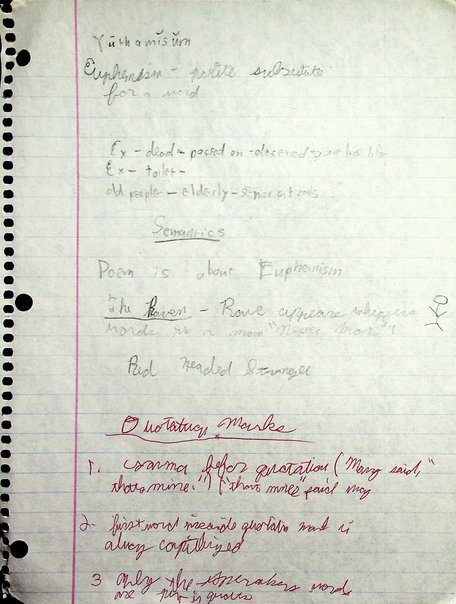 Yūthamĭsŭm
Euphemism - polite substitute
for a word
Ex - dead - passed on - deceased - gave his life
Ex - toilet -
old people - elderly - senior citizens
Semantics
Poem is about Euphemism
The Raven - Rave appears
words to a man "Never More"
Red Headed Stranger
Quotatuon Marks
1. comma befor quotation (Mary said,"
thats mine.") ("thats mine" said may
2. first word inside quotatn mark is
alway capitilized
3 only the speakers words
are put in quotes